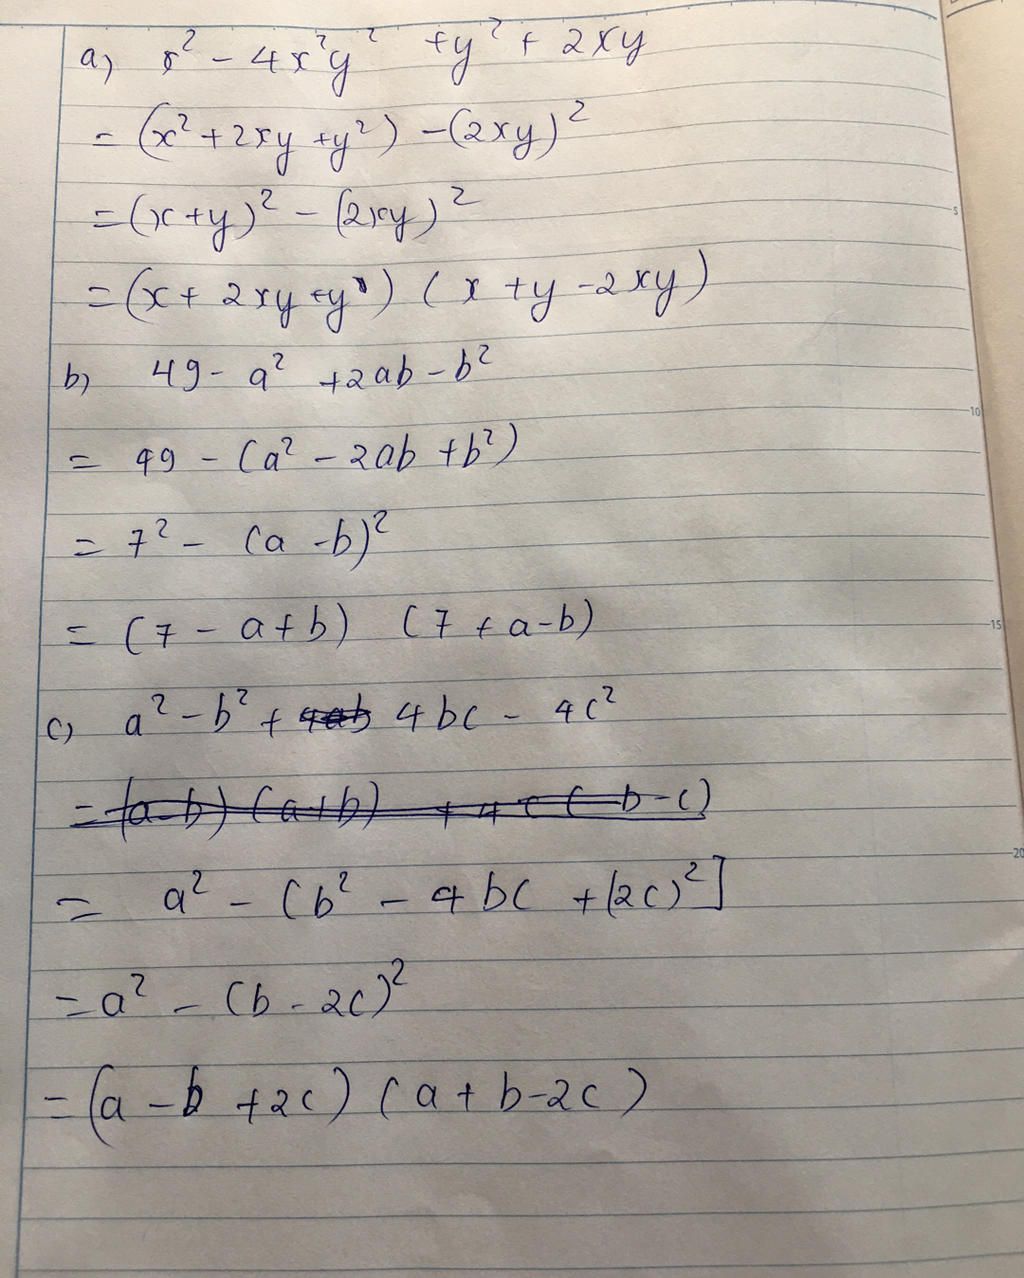 a) x² - 4x²y² + y² + 2xy
= (x² + 2xy + y²) - (2xy)²
= (x + y)² - (2xy)²
= (x + 2xy + y) (x + y - 2xy)
b) 49 - a² + 2ab - b²
= 49 - (a² - 2ab + b²)
= 7² - (a - b)²
= (7 - a + b) (7 + a - b)
c) a² - b² + 4ab 4bc - 4c²
= (a - b) (a + b) + 4c (b - c)
= a² - (b² - 4bc + (2c)²]
= a² - (b - 2c)²
= (a - b + 2c) (a + b - 2c)
5
10
15
20